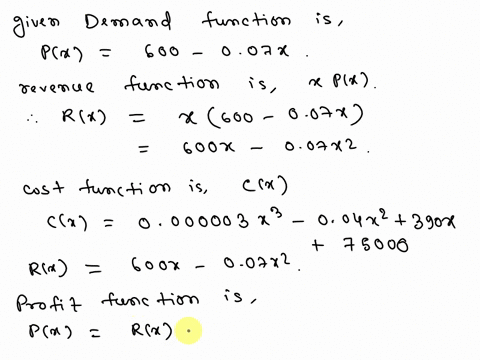 given Demand function is,
P(x) = 600 - 0.07x.
revenue function is, x P(x).
∴ R(x) = x(600 - 0.07x)
= 600x - 0.07x2.
cost function is, C(x)
C(x) = 0.000003 x³ - 0.04x² + 390x
+ 75000
R(x) = 600x - 0.07x².
Profit function is,
P(x) = R(x)